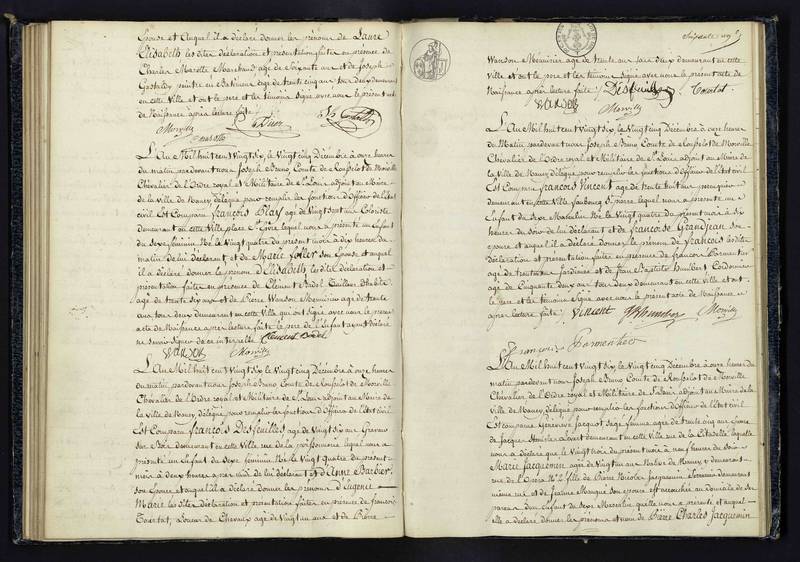 Épouse et auquel il a déclaré donner les prénoms de Laure
Elisabeth les dites déclaration et présentation faites en présence de
Charles Marotte Marchand agé de soixante ans et de Joseph
peintre en Batiment agé de trente cinq ans tous deux demeurant
en cette Ville et ont le pere et les témoins signé avec nous le present acte
de Naissance après lecture faite
Morville
Marotte
L'An Mil huit cent Vingt Six, le Vingt cinq Décembre à onze heures
du matin pardevant nous Joseph Bruno Comte de Rousselot de Morville
Chevalier de l'Ordre royal et Militaire de St Louis adjoint au Maire
de la Ville de Nancy délégué pour remplir les fonctions d'Officier de l'état
civil Est Comparu françois Blay agé de Vingt sept ans
demeurant en cette Ville place lequel nous a présenté un Enfant
du Sexe féminin Né le Vingt quatre du present mois à dix heures du
matin de lui déclarant et de Marie foller son Epouse et auquel
il a déclaré donner le prénom d'Elisabeth les dites déclaration et
présentation faites en présence de Clément Bridel Tailleur d'habits
agé de trente six ans et de Pierre Vanson Menuisier agé de trente
ans tous deux demeurant en cette Ville qui ont signé avec nous le present
acte de Naissance après lecture faite le pere de l'Enfant ayant déclaré
ne savoir signer de ce interpellé Clement Bridel
VANSON Morville
L'An Mil huit cent Vingt Six, le Vingt cinq Décembre à onze heures
du matin pardevant nous Joseph Bruno Comte de Rousselot de Morville
Chevalier de l'Ordre royal et Militaire de St Louis adjoint au Maire de
la Ville de Nancy délégué pour remplir les fonctions d'Officier de l'état civil
Est Comparu francois Desfeuilles agé de Vingt six ans Graveur
sur Bois demeurant en cette Ville, rue de la poissonnerie lequel nous a
présenté un Enfant du Sexe féminin Né le Vingt quatre du present
mois à deux heures après midi de lui déclarant et d'Anne Barbier
son Epouse et auquel il a déclaré donner les prénoms d'Eugénie
Marie les dites déclaration et présentation faites en présence de francois
Tourtat, Loueur de Chevaux agé de Vingt un ans et de Pierre
Soixante
Vanson Menuisier agé de trente ans tous deux demeurant en cette
Ville et ont le pere et les témoins signé avec nous le present acte de
Naissance après lecture faite Desfeuilles Tourtat
VANSON Morville
L'An Mil huit cent Vingt Six, le Vingt cinq Décembre à onze heures
du Matin pardevant nous Joseph Bruno Comte de Rousselot de Morville
Chevalier de l'Ordre royal et Militaire de St Louis adjoint au Maire de
la Ville de Nancy délégué pour remplir les fonctions d'Officier de l'état civil
Est Comparu francois Vincent agé de trente huit ans
demeurant en cette Ville faubourg St Pierre lequel nous a présenté un
Enfant du Sexe Masculin Né le Vingt quatre du present mois à dix
heures du Soir de lui déclarant et de francoise Grandjean son
epouse et auquel il a déclaré donner le prénom de francois les dites
déclaration et présentation faites en présence de francois Parmentier
agé de trente ans Jardinier et de Jean Baptiste Humbert Cordonnier
agé de Cinquante deux ans tous deux demeurant en cette Ville et ont
le pere et les témoins Signé avec nous le présent acte de Naissance
après lecture faite Vincent Humbert Morville
François Parmentier
L'An Mil huit cent Vingt Six, le Vingt cinq Décembre à onze heures du
matin pardevant nous Joseph Bruno Comte de Rousselot de Morville
Chevalier de l'Ordre royal et Militaire de St Louis adjoint au Maire de la
Ville de Nancy, délégué pour remplir les fonctions d'Officier de l'état Civil
Est comparue Genevieve Jacquot Sage femme agée de trente cinq ans Epouse
de Jacques demeurant en cette Ville rue de la Citadelle, laquelle
nous a déclaré que le Vingt trois du present mois à neuf heures du soir
Marie Jacquemin agée de Vingt ans Native de Nancy y demeurant
rue de l'Opera fille de Pierre Nicolas Jacquemin demeurant
même rue et de Jeanne Mangue son epouse est accouchée au domicile de ses
parens d'un Enfant du Sexe Masculin qu'elle nous a présenté et auquel
elle a déclaré donner les prénoms et nom de Pierre Charles Jacquemin